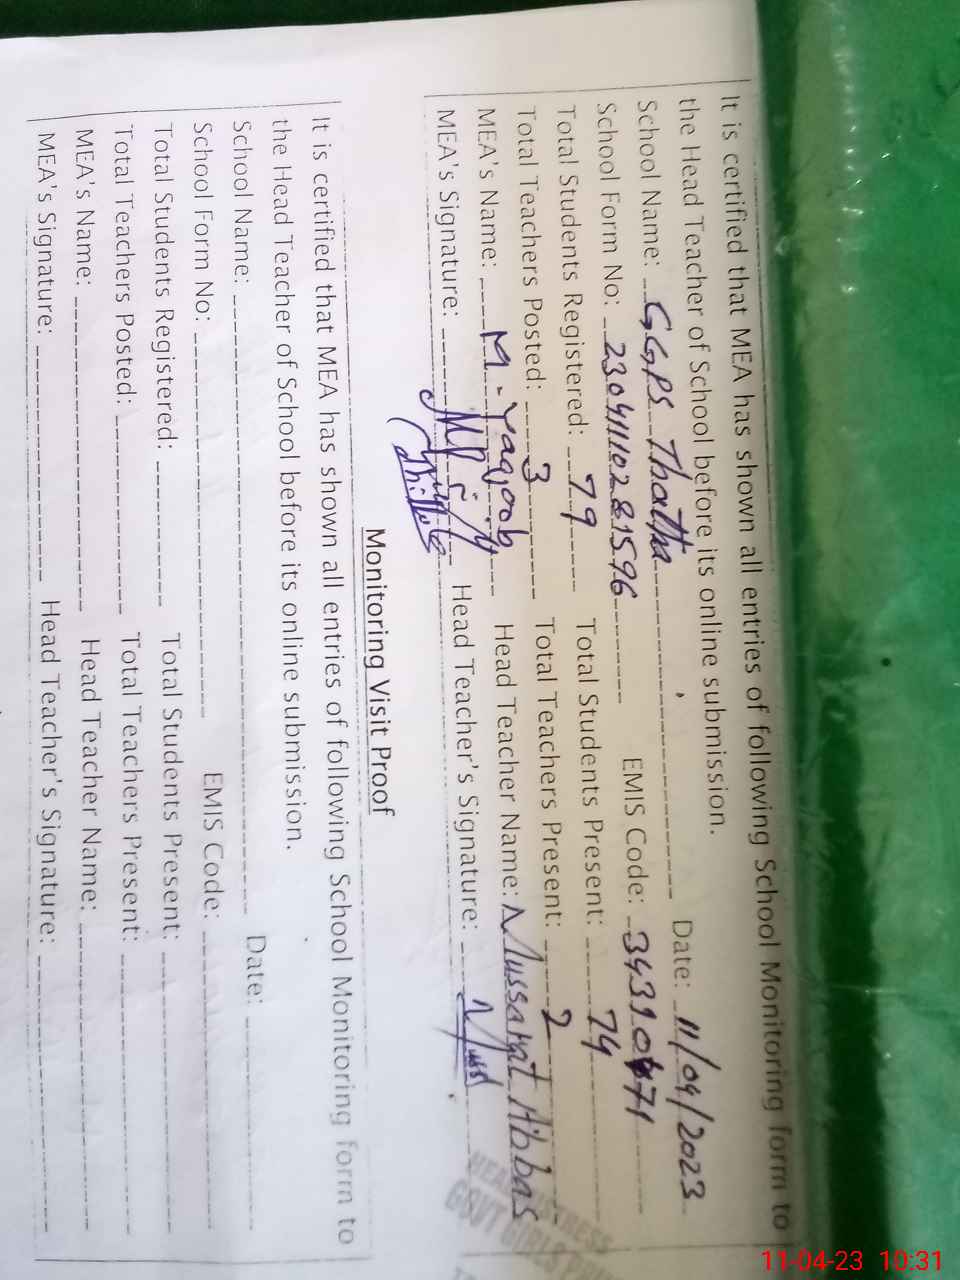 It is certified that MEA has shown all entries of following School Monitoring form to
the Head Teacher of School before its online submission.
School Name: G.G.PS Thatha Date: 11/04/2023
School Form No: 230411102821596 EMIS Code: 34310471
Total Students Registered: 79 Total Students Present: 74
Total Teachers Posted: 3 Total Teachers Present: 2
MEA's Name: M. Yaqoob Head Teacher Name: Mussarat Abbas
MEA's Signature: Head Teacher's Signature:
HEADMISTRESS
GOVT GIRLS
Monitoring Visit Proof
It is certified that MEA has shown all entries of following School Monitoring form to
the Head Teacher of School before its online submission.
School Name: Date:
School Form No: EMIS Code:
Total Students Registered: Total Students Present:
Total Teachers Posted: Total Teachers Present:
MEA's Name: Head Teacher Name:
MEA's Signature: Head Teacher's Signature:
11-04-23 10:31